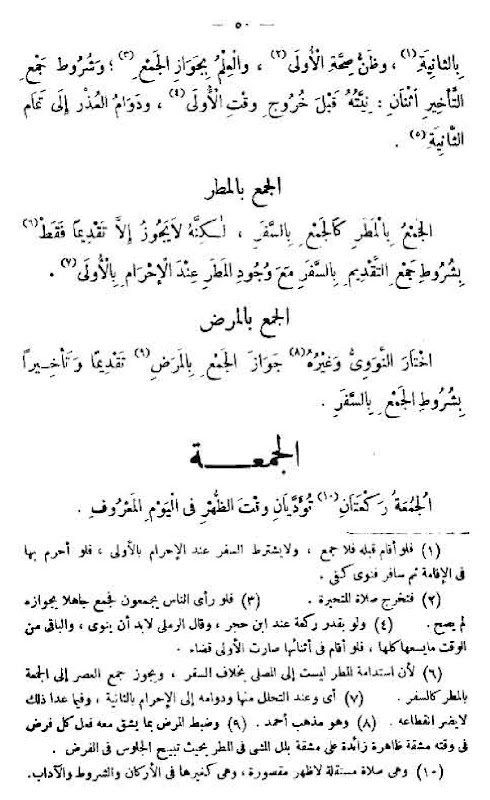 — ٥٠ —
بِالثانِيَةِ (١) ، وظَنُّ صِحَّةِ الْأُولَى (٢) ، والْعِلْمُ بِجَوازِ الْجَمْعِ (٣) ؛ وشُرُوط جَمْعِ
التَّأخيرِ اثْنَانِ : نِيَّتُهُ قَبْلَ خُرُوجِ وقْتِ الْأُولَى (٤) ، ودَوامُ الْعُذْر إلَى تَمَام
الثَّانِيَةِ (٥) .
الجمع بالمطر
الجَمْعُ بِالْمَطَرِ كَالجَمْعِ بِالسَّفَرِ ، لٰكِنَّهُ لاَيَجُوزُ إلاَّ تَقْدِيمًا فَقَطْ (٦)
بِشُرُوطِ جَمْعِ التَّقْدِيمِ بِالسَّفَرِ مَعَ وُجُودِ المَطَرِ عِنْدَ الْإِحْرَامِ بِالْأُولَى (٧) .
الجمع بالمرض
اخْتَارَ النَّوَوِىُّ وَغَيْرُهُ (٨) جَوَازَ الجَمْعِ بِالمَرَضِ (٩) تَقْدِيمًا وَتَأخِيراً
بِشُرُوطِ الجَمْعِ بِالسَّفَرِ .
الجمعـــة
الجُمُعَةُ رَكْعَتَانِ (١٠) تُؤَدَّيَانِ وقْتَ الظُّهْرِ فى الْيَوْمِ المَعْرُوفِ .
(١) فلو أقام قبله فلا جمع ، ولايشترط السفر عند الإحرام بالأولى ، فلو أحرم بها
فى الإقامة ثم سافر فنوى كفى .
(٢) فتخرج صلاة المتحيرة . (٣) فلو رأى الناس يجمعون فجمع جاهلا بجوازه
لم يصح . (٤) ولو بقدر ركعة عند ابن حجر ، وقال الرملى لابد أن ينوى ، والباقى من
الوقت مايسعها كلها ، فلو أقام فى أثنائها صارت الأولى قضاء .
(٦) لأن استدامة المطر ليست إلى المصلى بخلاف السفر ، ويجوز جمع العصر إلى الجمعة
بالمطر كالسفر . (٧) أى وعند التحلل منها ودوامه إلى الإحرام بالثانية ، وفيما عدا ذلك
لايضر انقطاعه . (٨) وهو مذهب أحمد . (٩) وضبط المرض بما يشق معه فعل كل فرض
فى وقته مشقة ظاهرة زائدة على مشقة بلل المشى فى المطر بحيث تبيح الجلوس فى الفرض .
(١٠) وهى صلاة مستقلة لاظهر مقصورة ، وهى كغيرها فى الأركان والشروط والآداب.